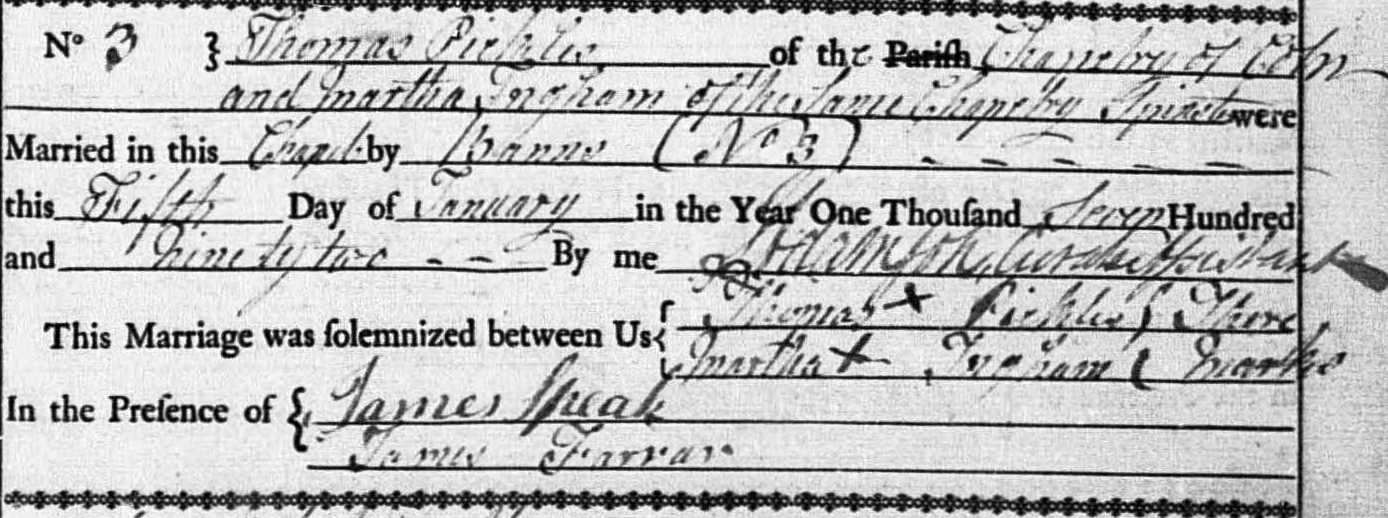 No 3 } Thomas Pickles of the Parish Chapelry of Coln
and Martha Ingham of the Same Chapelry Spinster were
Married in this Chapel by Banns (No 3) - - - - -
this Fifth Day of January in the Year One Thouſand Seven Hundred
and Ninety two - - - By me Adamson, Curate
This Marriage was ſolemnized between Us { Thomas + Pickles } There
Martha + Ingham { Marks
In the Preſence of { James Speak
James Farrar